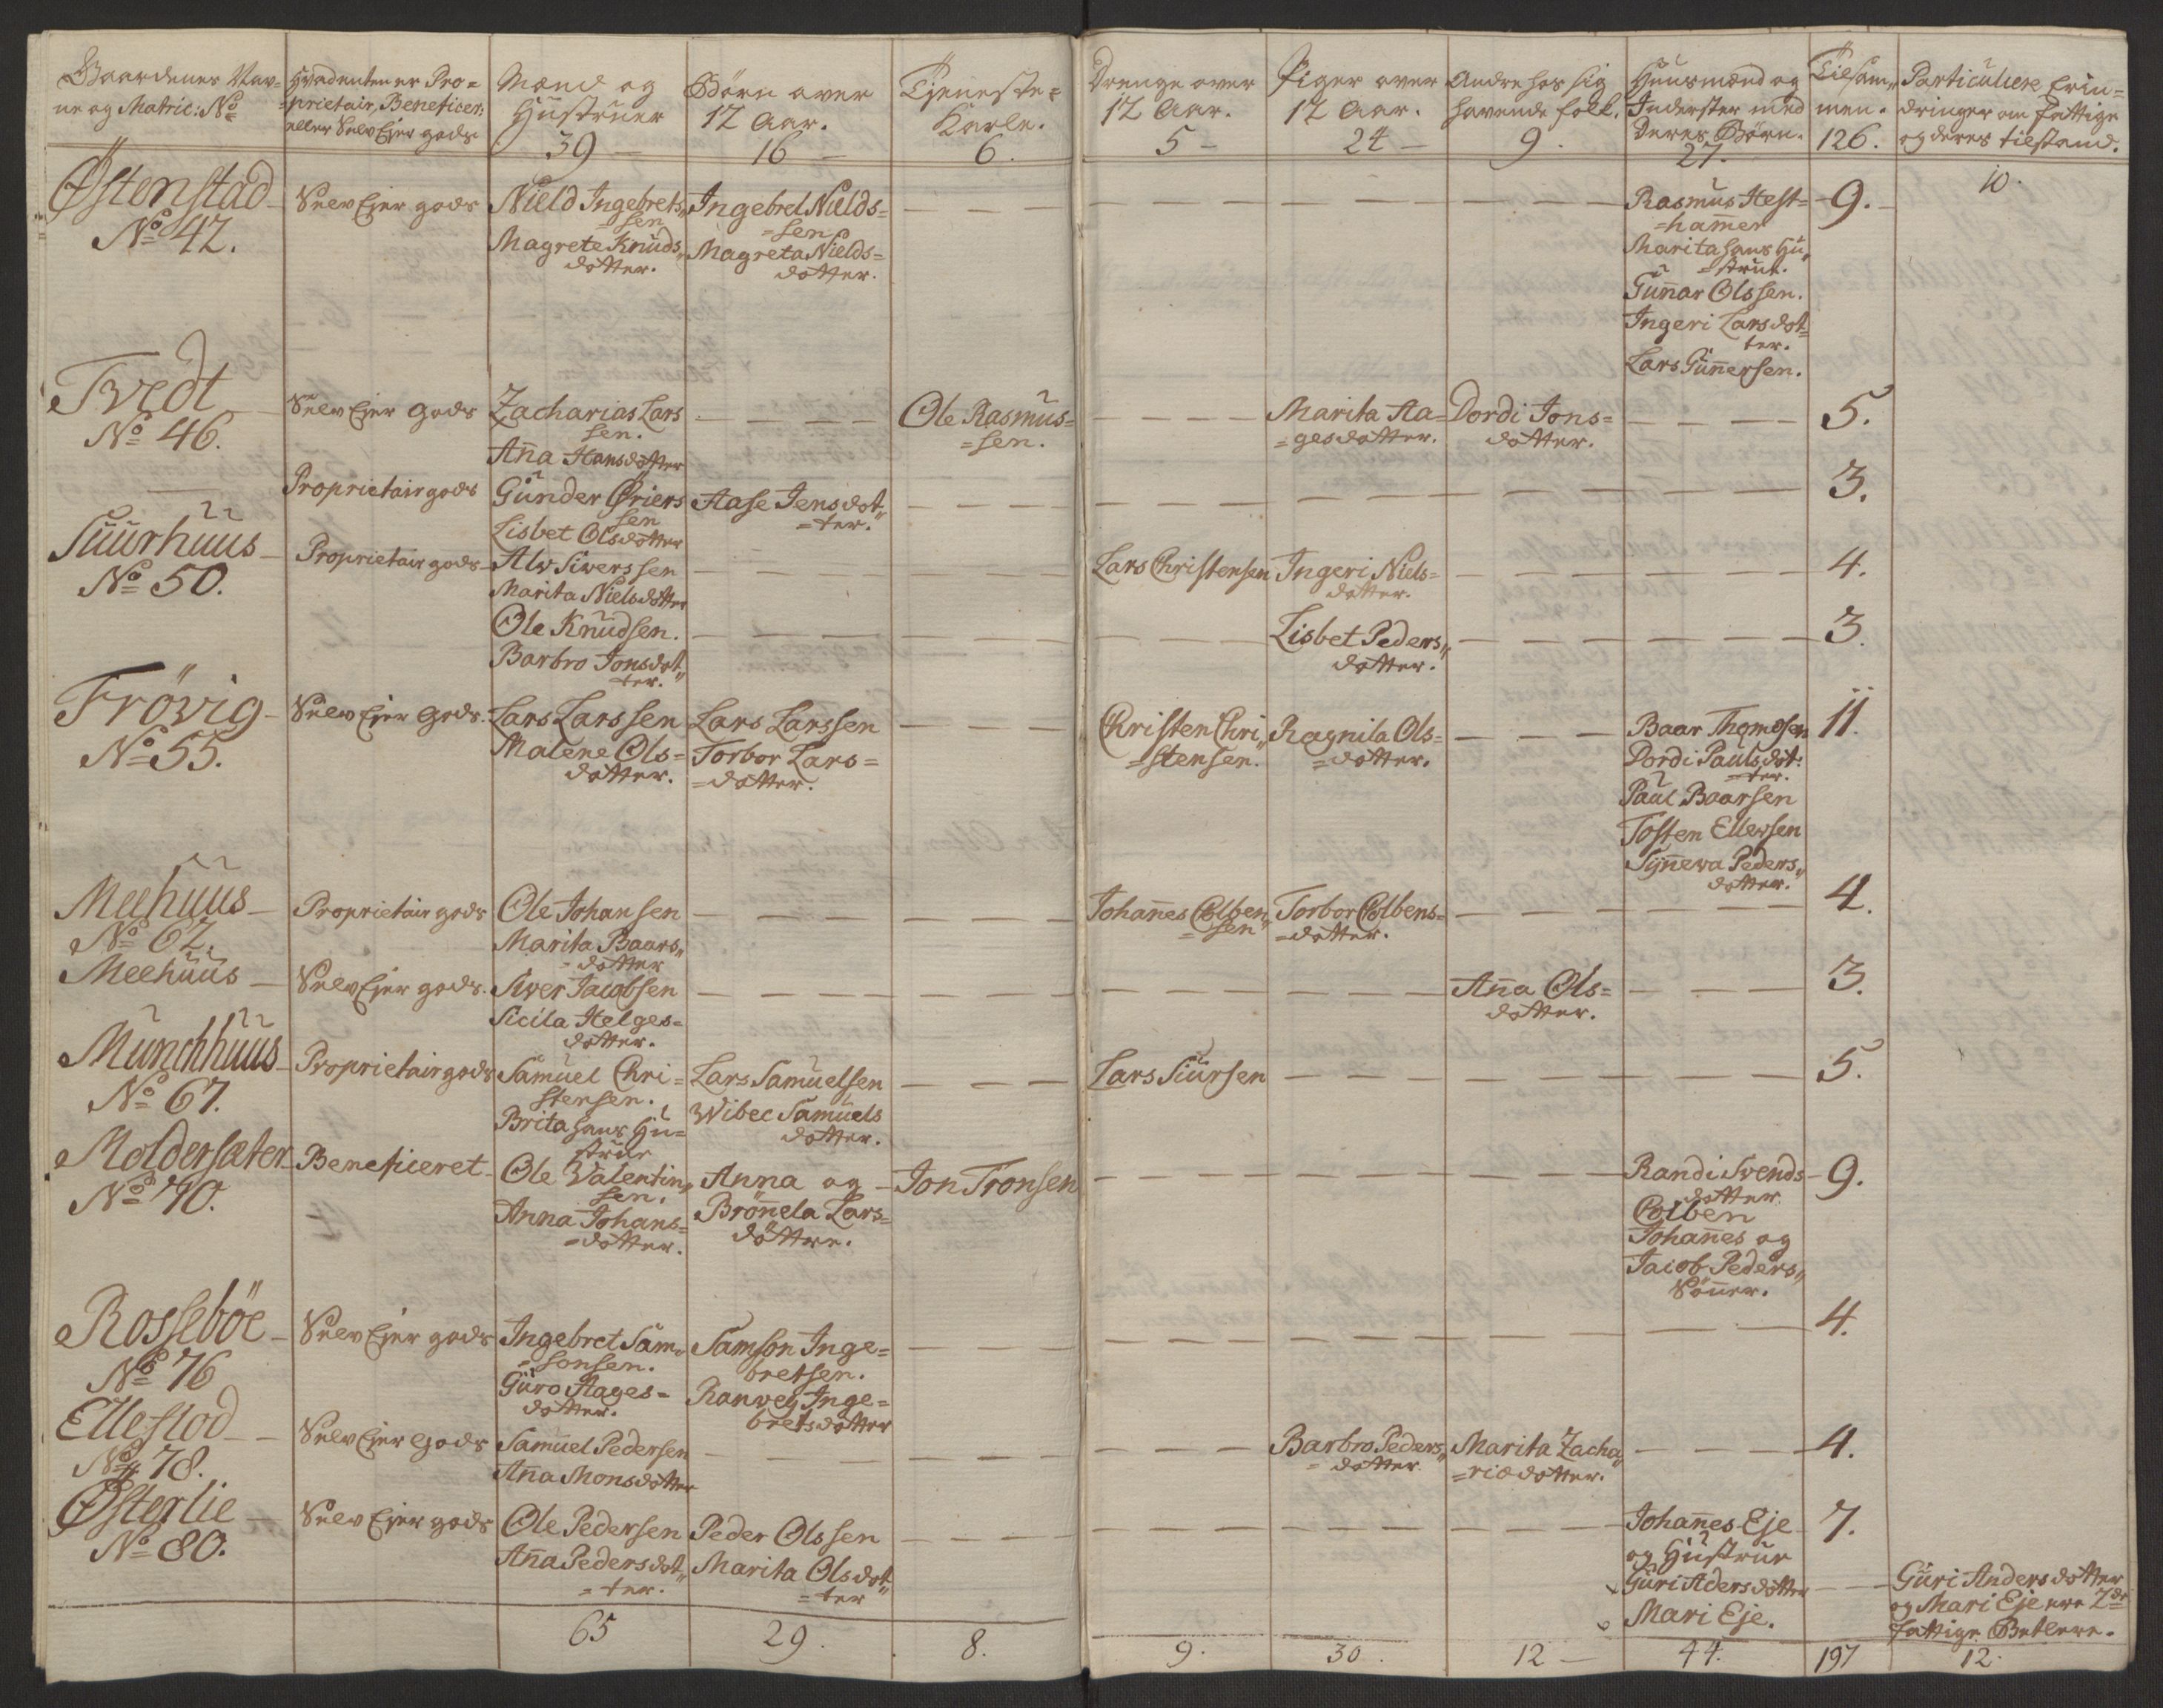 Gaardenes Nav-
ne og Matric: No
Hvadenten er Pro=
=prietair, Beneficer:
eller Selv Ejer gods
Mænd og
Hüstrüer
39 —
Börn over
12 Aar.
16 —
Tjeneste=
Karle.
6.
Drenge over
12 Aar.
5 —
Piger over
12 Aar.
24 —
Andre hos sig
havende folk.
9.
Huusmænd og
Inderster med
Deres Börn.
27.
Tilsam„
men.
126.
Particuliere Erin=
dringer om fattige
og deres tilstand.
10.
Østenstad
No 42.
Selv Ejer gods
Nield Ingebrets„
=sen
Magrete Knüds„
dotter.
Ingebret Nields=
=sen
Magreta Nields=
dotter.
Rasmus Hest=
=ham̄er
Marita hans Hü„
=strüe.
Gun̄ar Olssen.
Ingeri Larsdot=
ter.
Lars Gün̄ersen.
9.
Tvedt
No 46.
Selv Ejer Gods
Zacharias Lars
sen.
An̄a Hansdotter
Ole Rasmus=
=sen.
Marita Aa=
=gesdotter.
Dordi Jons=
dotter.
5.
Proprietair gods
Günder Griers
sen
Lisbet Olsdotter
Aase Jensdot„
=ter.
3.
Süürhüüs
No 50.
Proprietair gods
Alv Siverssen
Marita Nielsdotter
Lars Christensen
Ingeri Niels=
dotter.
4.
Ole Knüdsen.
Barbro Jonsdot„
ter.
Lisbet Peders„
dotter.
3.
Frövig
No 55.
Selv Ejer Gods.
Lars Larssen
Malene Ols=
dotter.
Lars Larssen
Torbor Lars=
=dotter.
Christen Chri„
=stensen.
Ragnila Ols=
=dotter.
Baar Thomdsen
Dordi Paulsdot:
=ter.
Paul Baarsen
Tosten Ellersen
Syn̄eva Peders„
dotter.
11.
Meehüüs
No 62.
Proprietair gods
Ole Johansen
Marita Baars„
=dotter
Johan̄es Colben„
=sen
Torbor Colbens=
=dotter.
4.
Meehüüs
Selv Ejer gods.
Siver Jacobsen
Sicila Helges=
dotter.
An̄a Ols=
dotter.
3.
Münchhüüs
No 67.
Proprietair gods
Samüel Chri=
stensen.
Brita hans Hü=
strüe
Lars Samüelsen
Wibec Samüels
dotter.
Lars Siürsen
5.
Moldersæter
No 70.
Beneficeret
Ole Valentin„
sen.
Anna Johans=
=dotter.
Anna og
Brön̄ela Lars=
döttre.
Jon Tronsen
Randi Svends
dotter
Colben
Johan̄es og
Jacob Peders„
Sönner.
9.
Rosseböe
No 76
Selv Ejer gods
Ingebret Sam„
=sonsen.
Güro Aages=
dotter.
Samson Inge=
bretsen.
Ranveg Inge=
bretsdotter
4.
Ellestod
No 78.
Selv Ejer Gods
Samüel Pedersen
An̄a Monsdotter
Barbro Peders„
=dotter
Marita Zacha„
=riædotter.
4.
Østerlie
No 80.
Selv Ejer gods
Ole Pedersen
An̄a Pedersdot„
=ter.
Peder Olssen
Marita Olsdot„
=ter
Johan̄es Eje
og Hüstrüe
Güri Adersdotter
Mari Eje.
7.
Güri Andersdotter
og Mari Eje ere 2de
fattige Betlere.
65
29.
8.
9.
30.
12 —
44.
197
12.